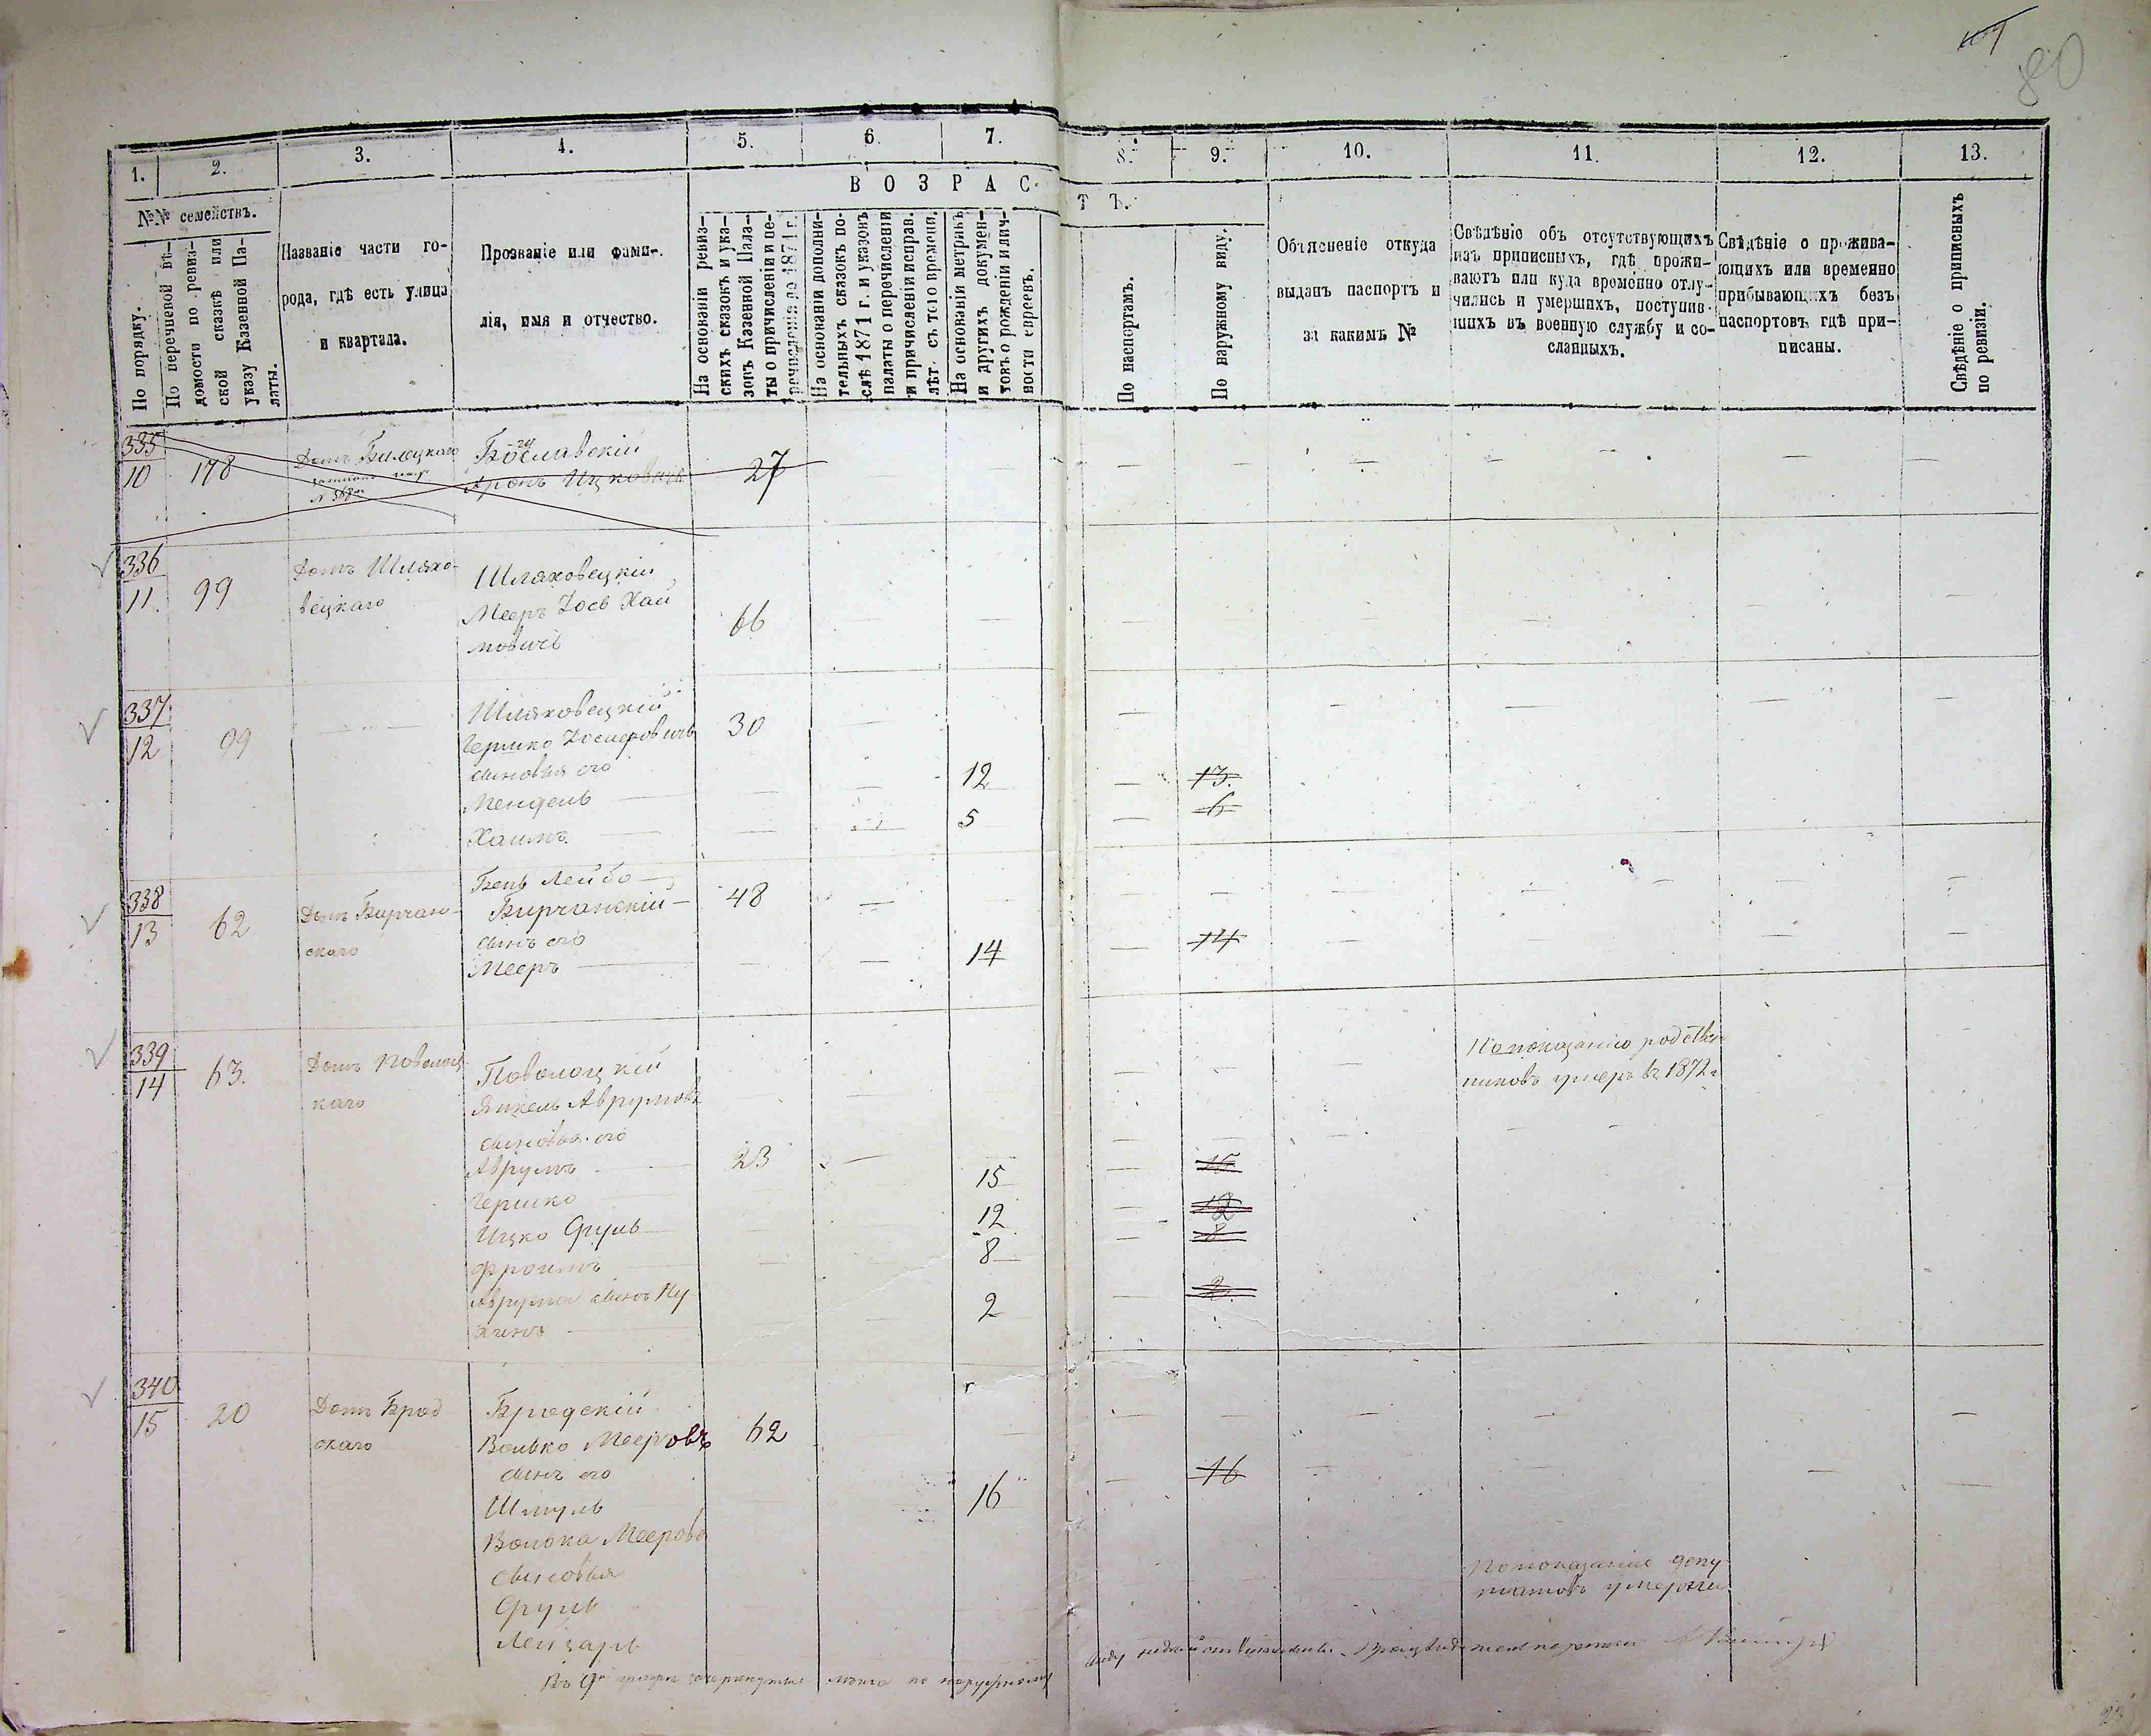 80
1.
2.
3.
4.
5.
6.
7.
8.
9.
10.
11.
12.
13.
№№ семействъ.
По порядку.
По перечневой вѣ-
домости по ревиз-
ской сказкѣ или
указу Казенной Па-
латы.
Названіе части го-
рода, гдѣ есть улица
и квартала.
Прозваніе или фами-
лія, имя и отчество.
ВОЗРАС
ТЪ.
На основаніи ревиз-
скихъ сказокъ и ука-
зовъ Казенной Пала-
ты о причисленіи и пе-
речисленіи до 1871 г.
На основаніи дополни-
тельныхъ сказокъ по-
слѣ 1871 г. и указовъ
палаты о перечисленіи
и причисленіи исправ.
лѣт. съ того времени.
На основаніи метрикъ
и другихъ докумен-
товъ о рожденіи и лич-
ности евреевъ.
По паспортамъ.
По наружному виду.
Объясненіе откуда
выданъ паспортъ и
за какимъ №
Свѣдѣніе объ отсутствующихъ
изъ приписныхъ, гдѣ прожи-
ваютъ или куда временно отлу-
чились и умершихъ, поступив-
шихъ въ военную службу и со-
сланныхъ.
Свѣдѣніе о прожива-
ющихъ или временно
прибывающихъ безъ
паспортовъ гдѣ при-
писаны.
Свѣдѣніе о приписныхъ
по ревизіи.
335
10 178 Домъ Билецкаго
Богуславскій
Аронъ Ицковичъ 27
336
11. 99 Домъ Шляхо-
вецкаго
Шляховецкій
Мееръ Iось Хай
мовичъ 66
337
12 99
Шляховецкій
Гершко Iосиеровичъ 30
сыновья его
Мендель 12 13.
Хаимъ 5 6
338
13 62 Домъ Бирчан-
скаго
Бень Лейбо
Бирчанскій 48
сынъ его
Мееръ 14 14
339
14 63. Домъ Поволоц
каго
Поволоцкій
Янкель Аврумовъ
По показанію родствен
никовъ умеръ въ 1872 г
сыновья его
Аврумъ 23
Гершко 15 15
Ицко Сруль 12 12
Фроимъ 8 8
Аврума сынъ Ну
химъ 2 2.
340
15 20 Домъ Брод
скаго
Бродскій
Волько Мееровъ 62
сынъ его
Шмуль 16 16
Волька Меерова
сыновья
Сруль
Лейзаръ
По показанію депу
татовъ умерли
Въ 9й графѣ зачеркнутые лѣта по наружному
виду